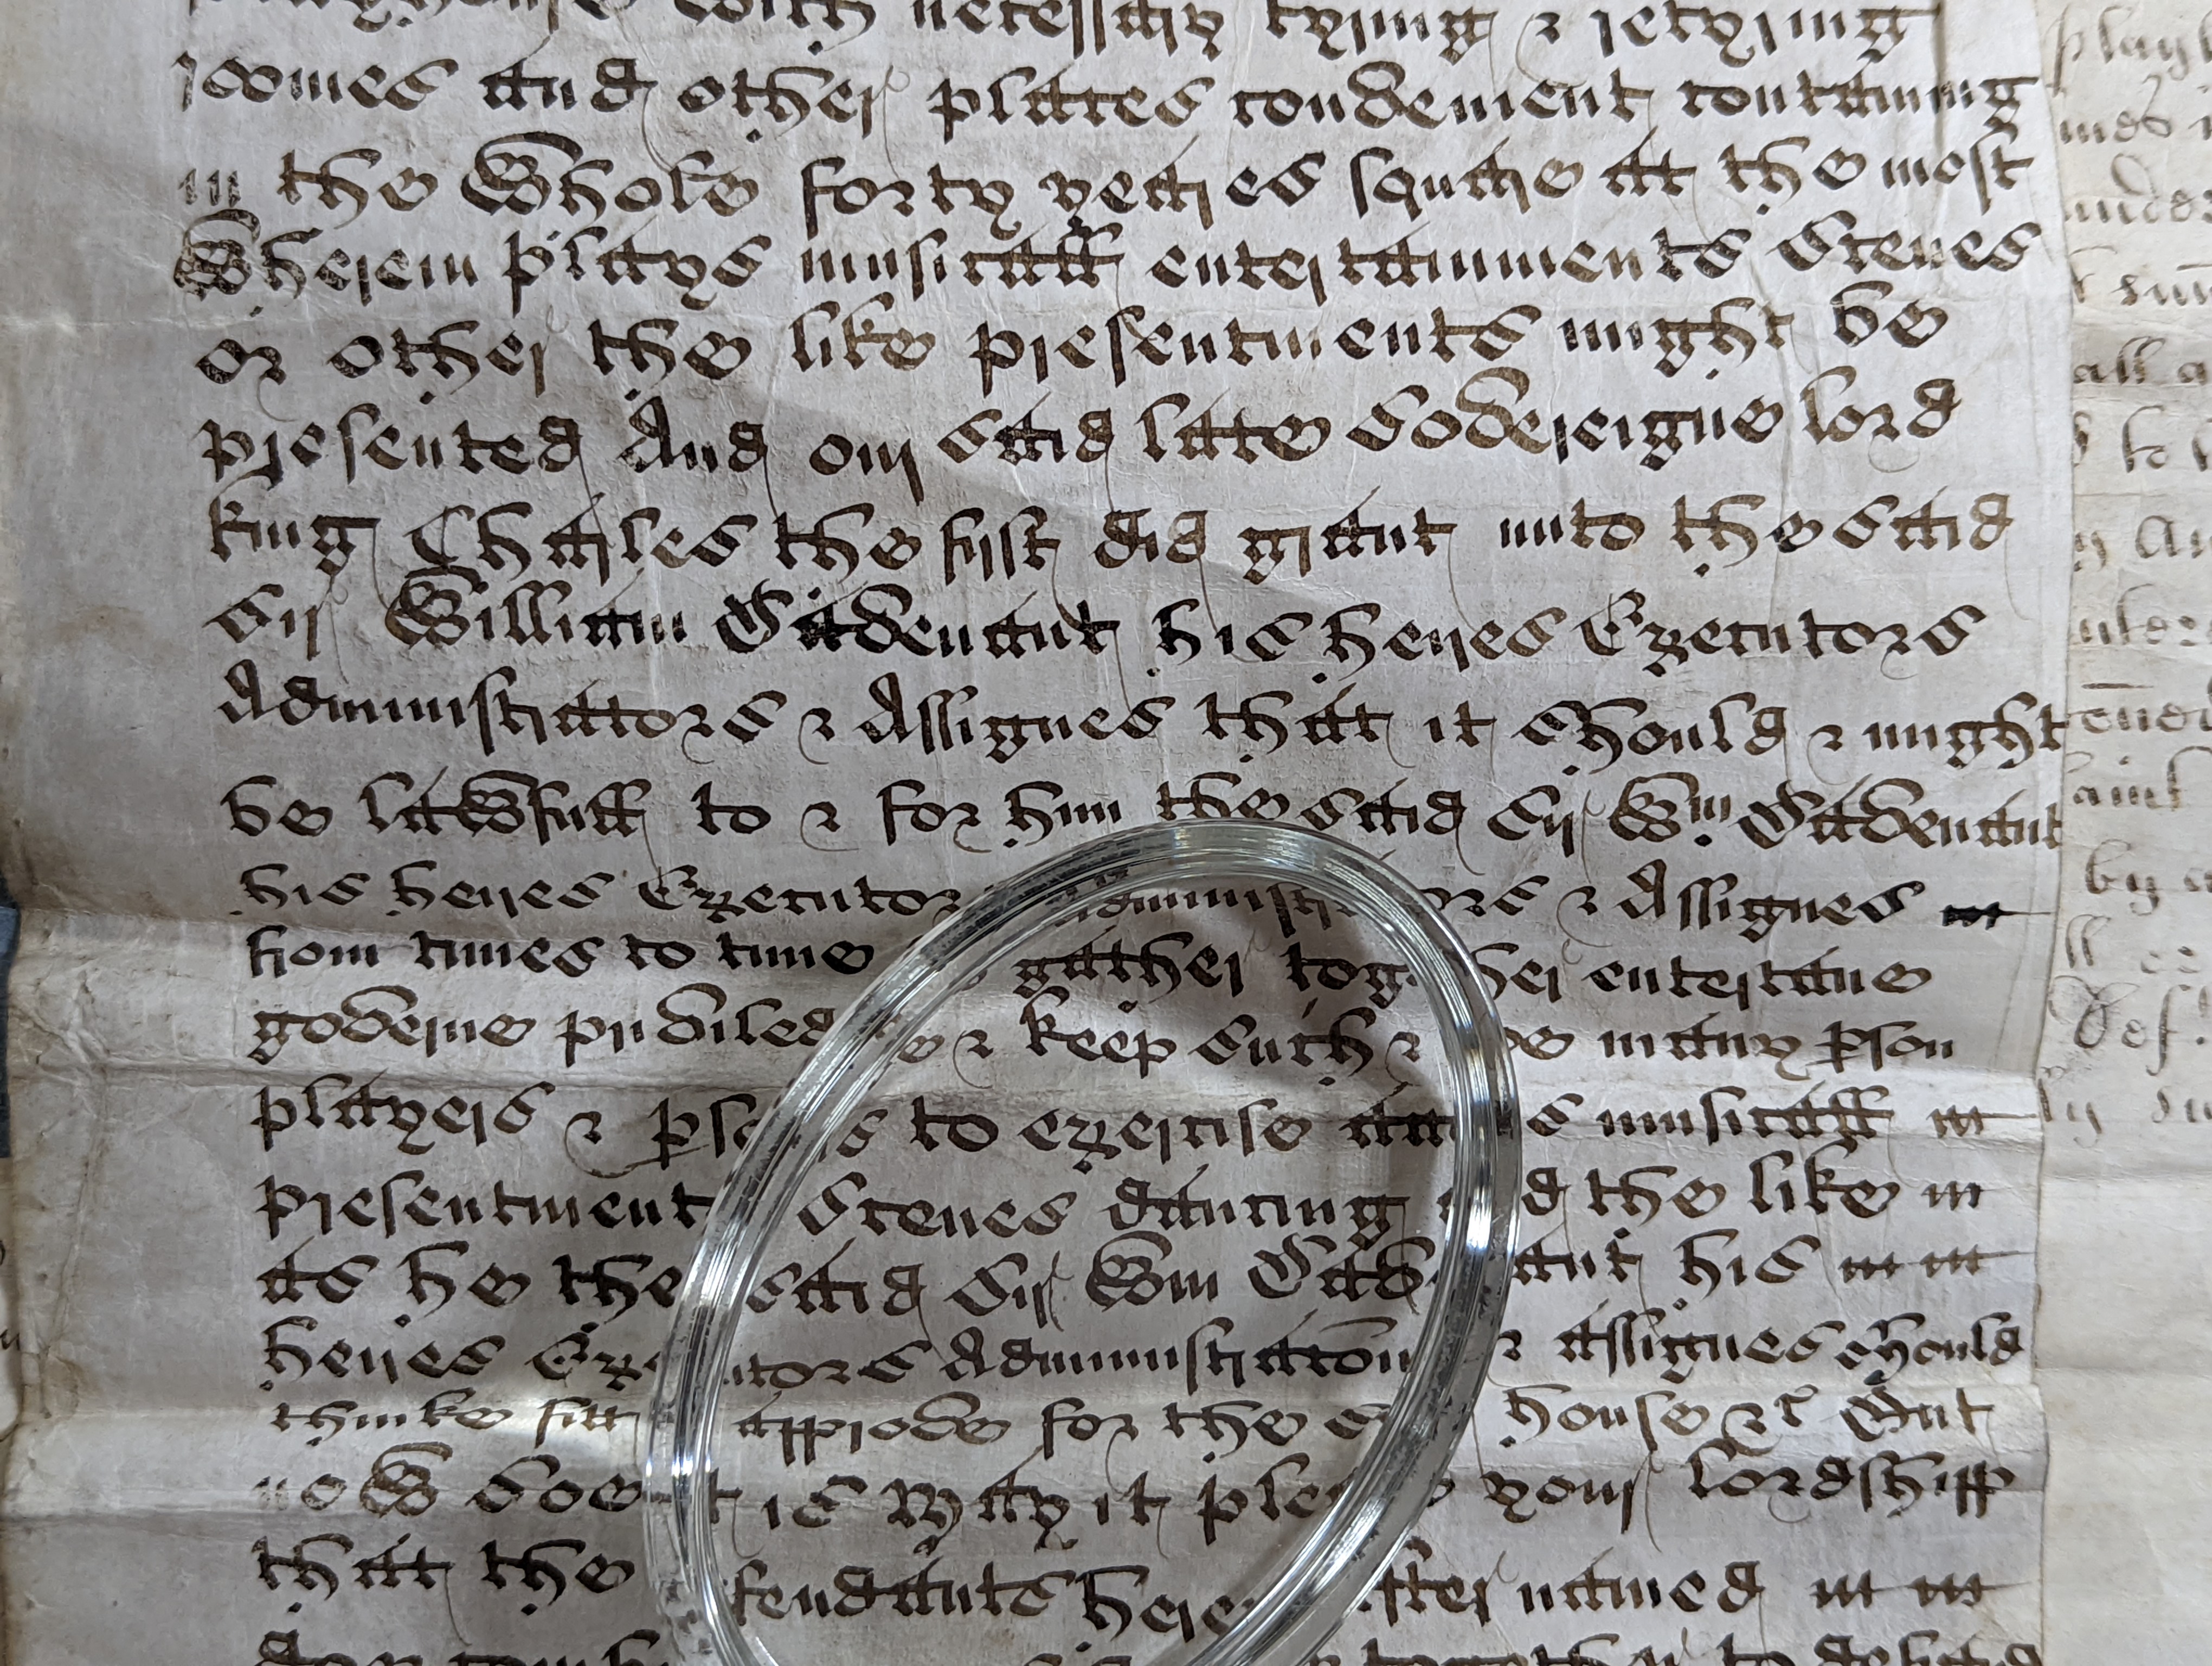 necessary tyring & retyring
roomes and other places convenient containing
in the Whole forty yeards square att the most
Wherein Plays musicall entertainments Scenes
or other the like presentments might be
presented And our said late Sovereigne lord
king Charles the first did grant unto the said
Sir William Davenant his heires Executors
Administrators & Assignes that it should & might
be lawfull to & for him the said Sir Wm Davenant
his heires Executors Administrators & Assignes
from times to time gather together entertaine
governe priviledge & keep such & soe many pson
players & psons to exercise musicall
presentments Scenes dancing and the like
as he the said Sir Wm Davenant his
heires Executors Administrators & assignes should
thinke fitt approve for the house &c But
now soe it is May it please your lordshipp
that the defendants hereafter named
playh
all a
to
by a